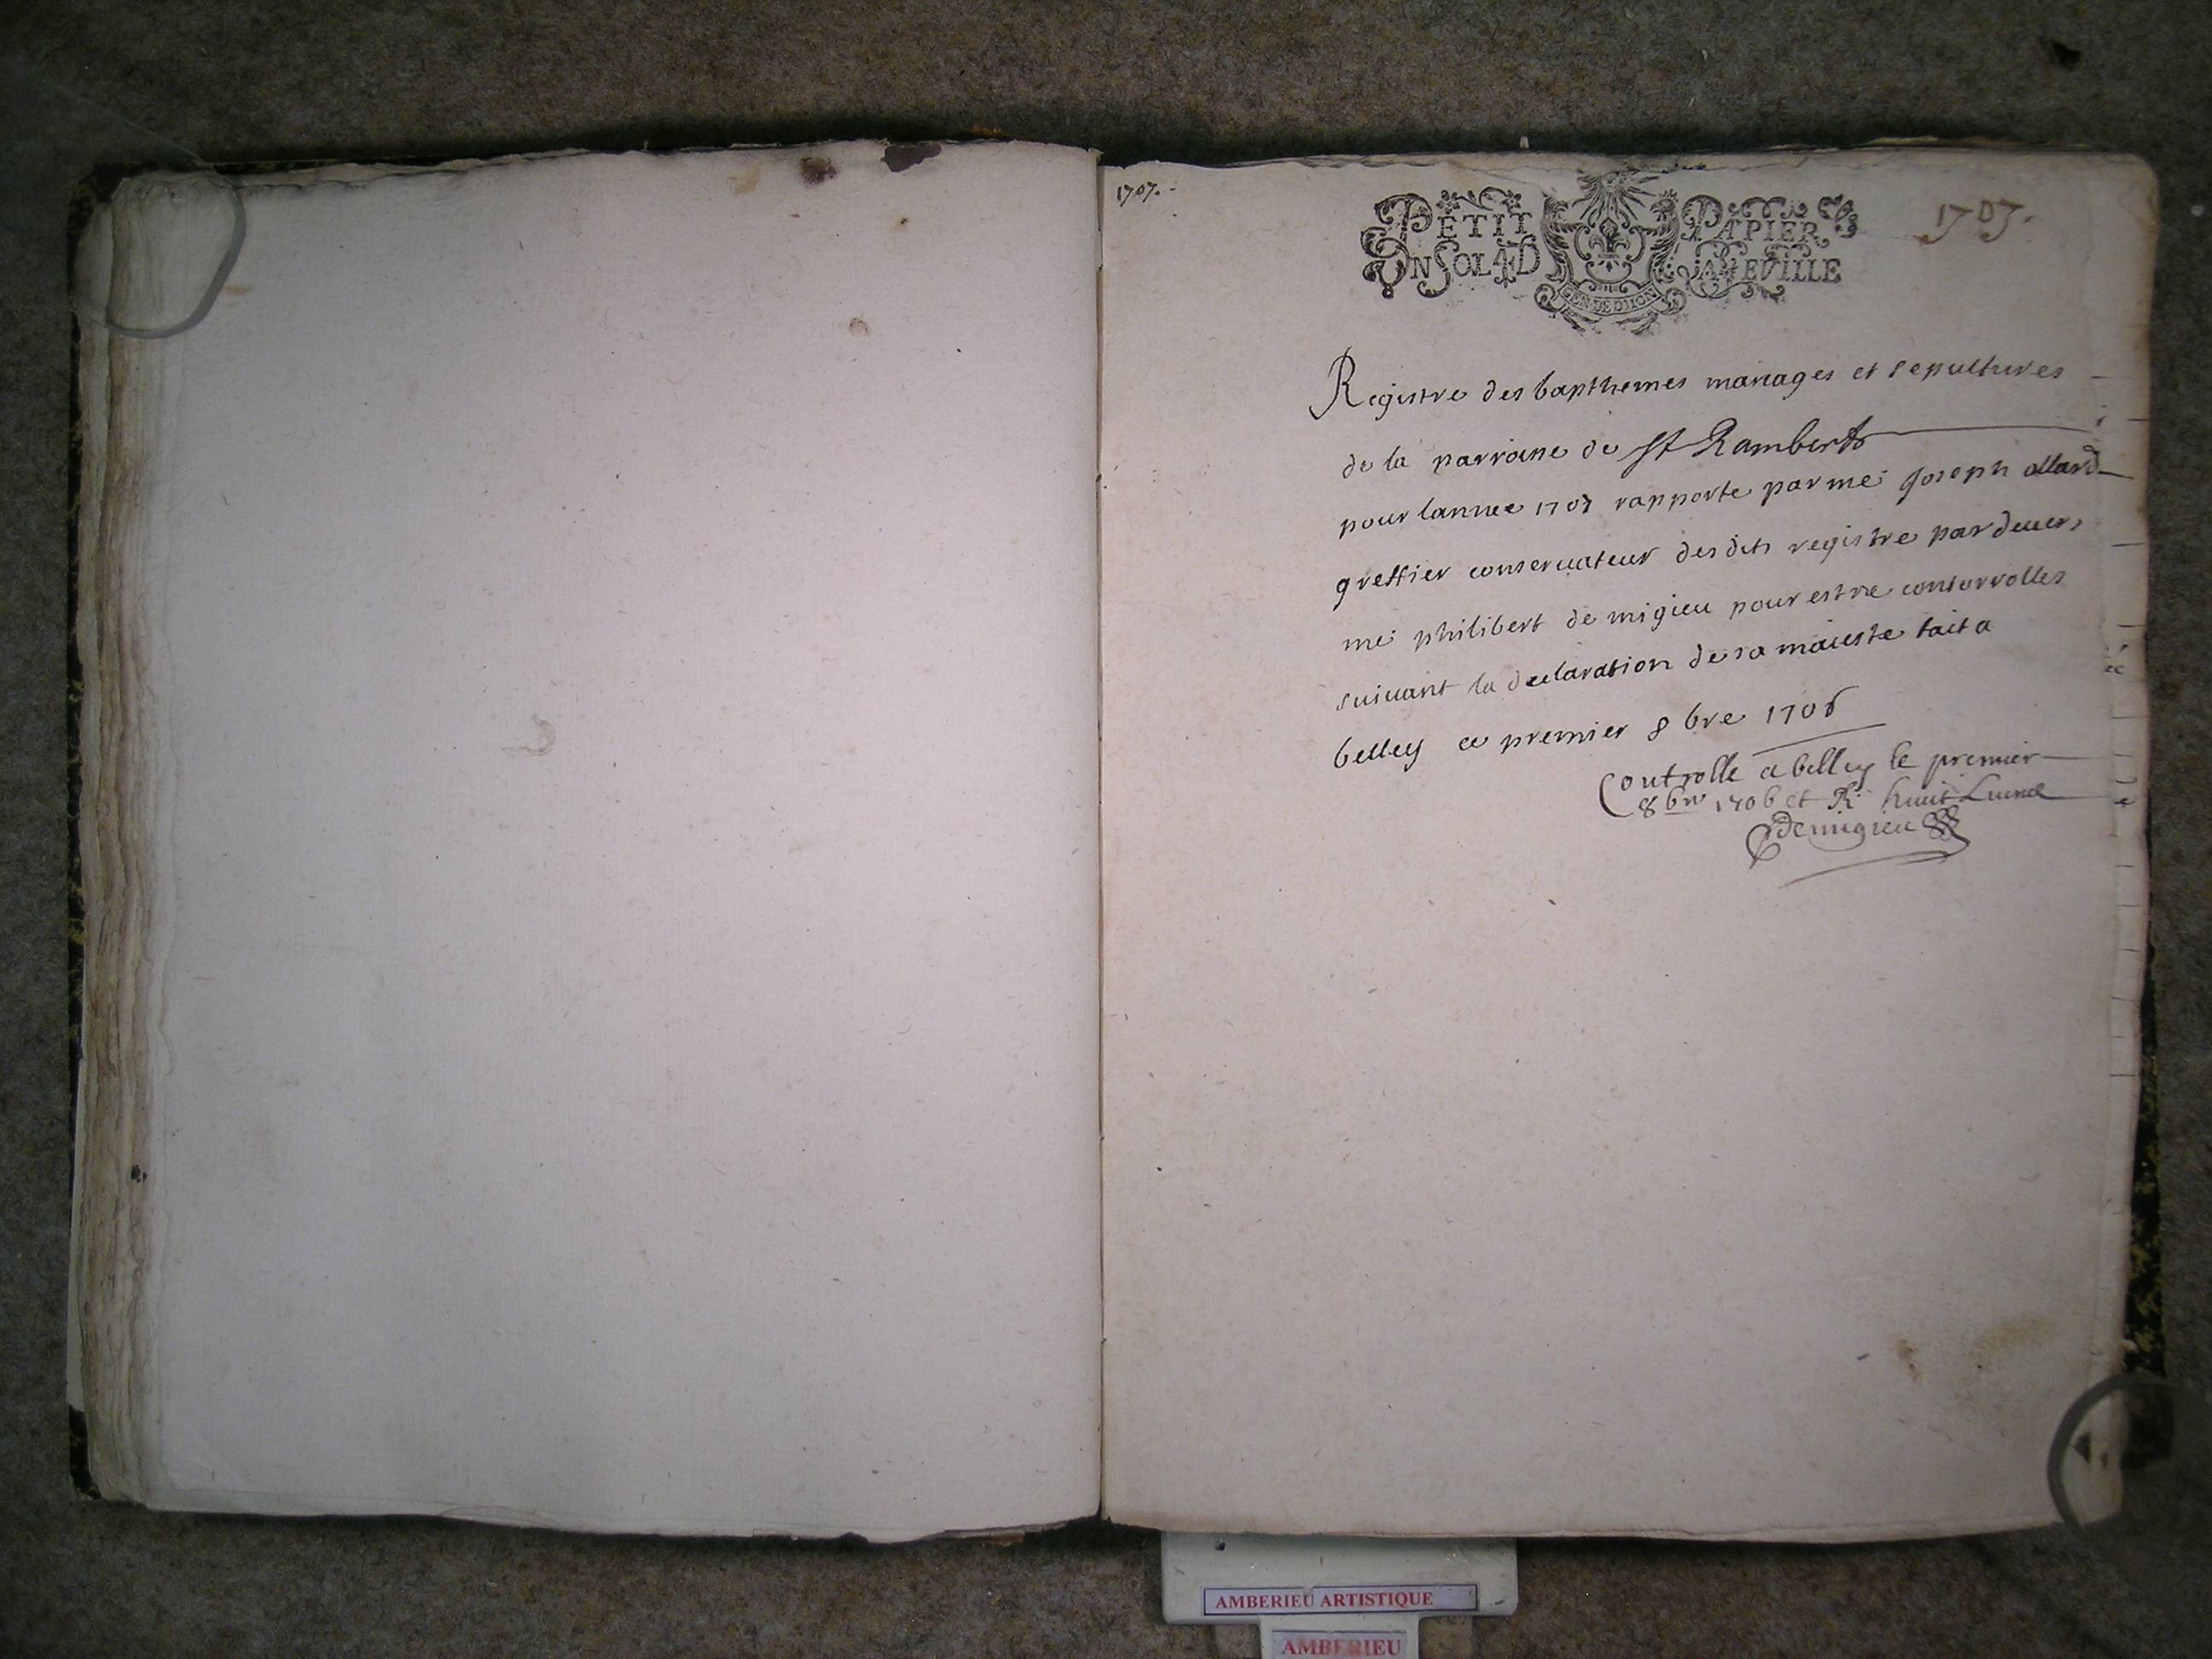 1707.
PETIT PAPIER
UN SOL 4 D LA FEUILLE
GEN. DE DIJON
1707.
Registre des bapthemes mariages et sepultures
de la parroisse de St Rambert
pour lannee 1707 rapporte par me Joseph allard
greffier conseruateur des dits registre pardeuers
me philibert de migieu pour estre contorrolles
suiuant la declaration de sa maieste fait a
belley ce premier 8bre 1706
Controlle a belley le premier
8bre 1706 et R huit
Demigieu
AMBERIEU ARTISTIQUE
AMBERIEU